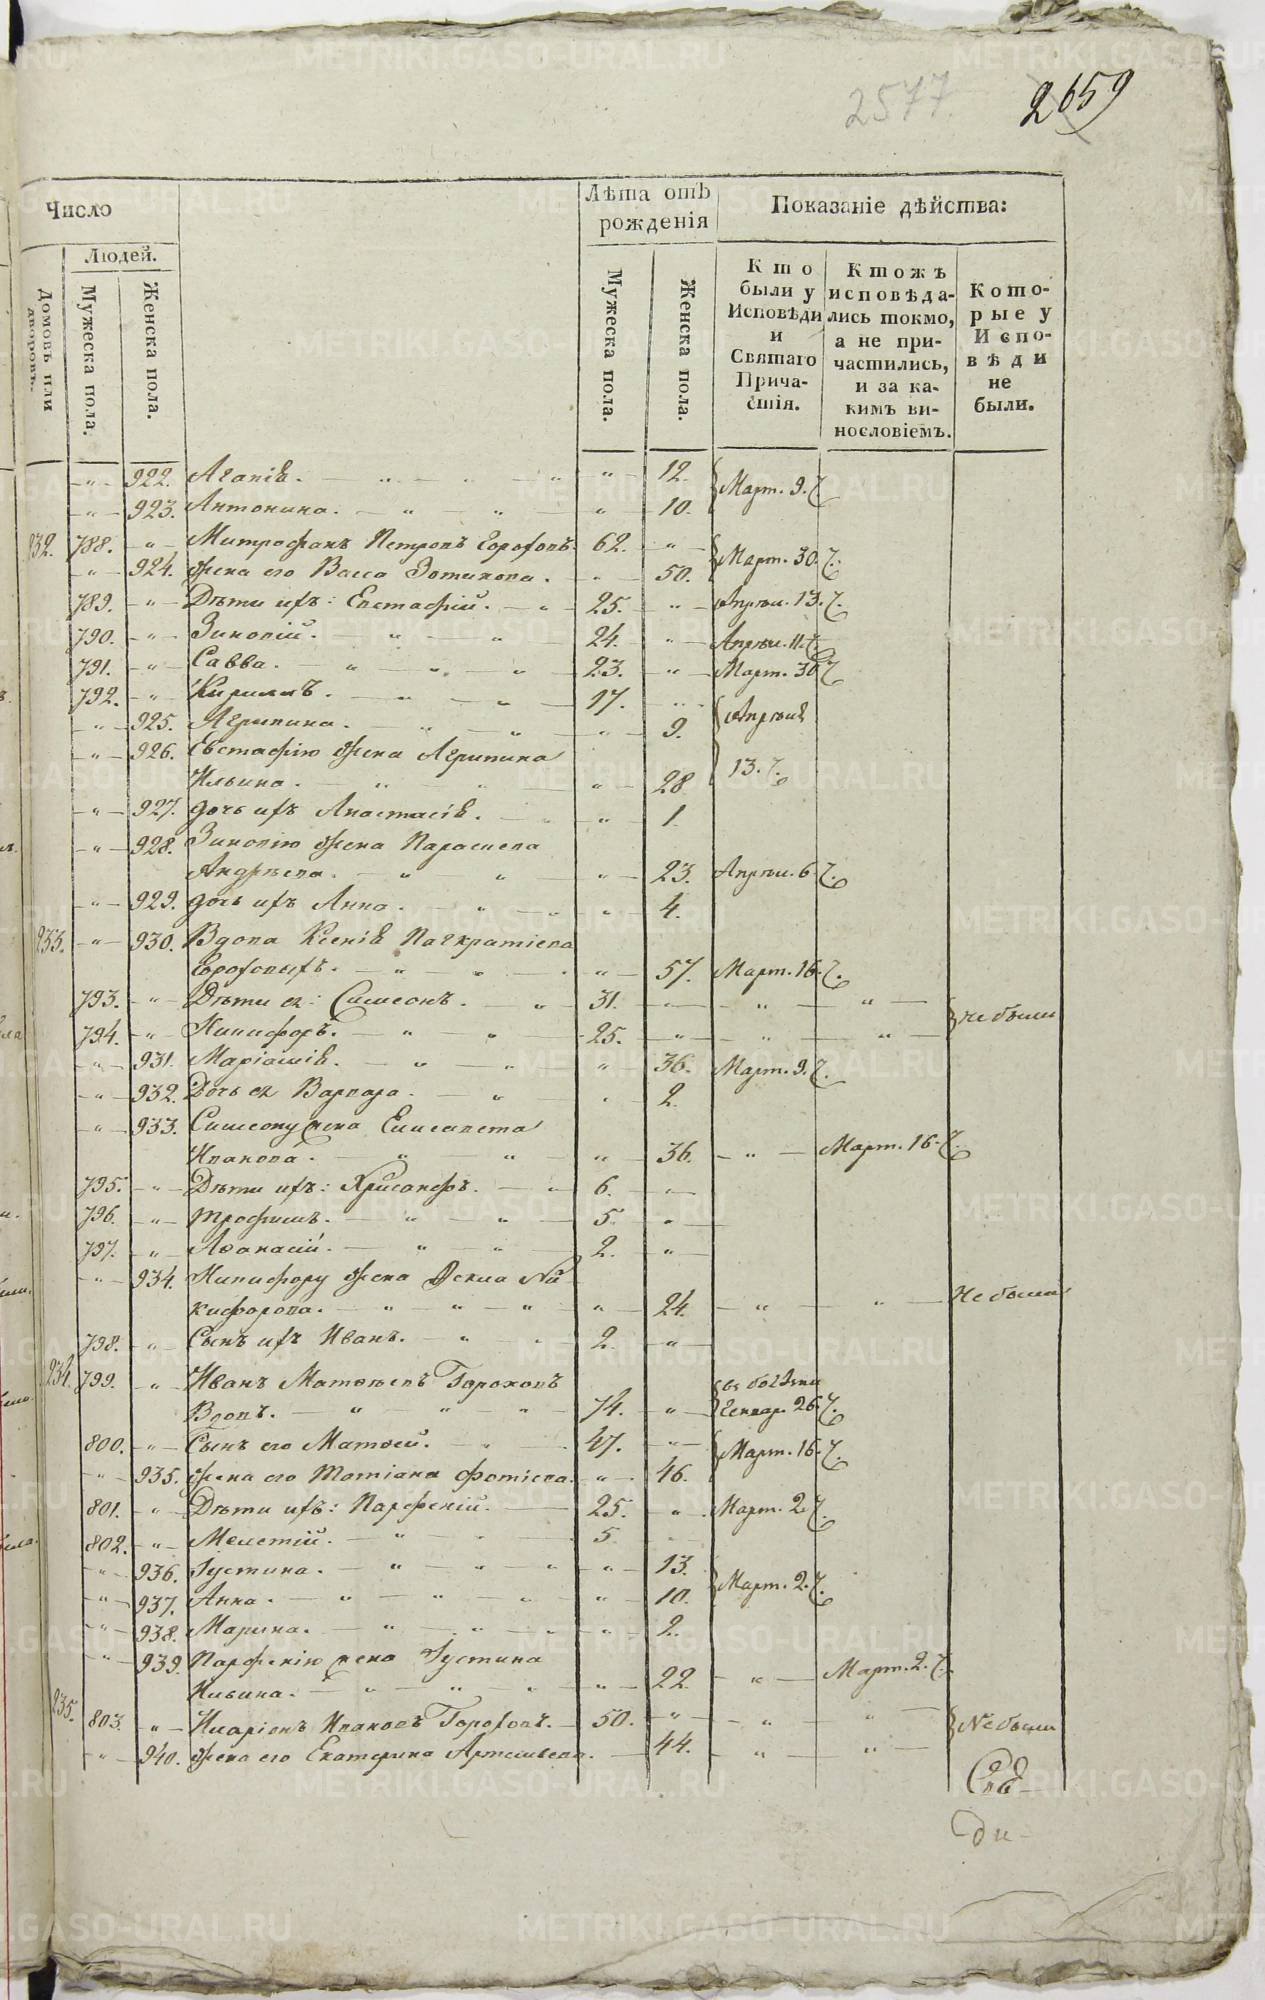 2577.
2659
Число
Лѣта отъ рожденія
Показаніе дѣйства:
Людей.
Домовъ или дворовъ.
Мужеска пола.
Женска пола.
Мужеска пола.
Женска пола.
Кто были у Исповѣди и Святаго Причастія.
Ктожъ исповѣдались токмо, а не причастились, и за какимъ винословіемъ.
Которые у Исповѣди не были.
922. Агапія. 12. Март. 9.
923. Антонина. 10.
232. 788. Митрофанъ Петровъ Гороховъ. 62. Март. 30.
924. Жена его Васса Зотикова. 50.
789. Дѣти ихъ: Евстафій. 25. Апрѣл. 13.
790. Зиновій. 24. Апрѣл. 11.
791. Савва. 23. Март. 30
792. Кириллъ. 17.
925. Агрипина. 9. Апрѣля
926. Евстафію жена Агрипина
Ильина. 28 13.
927. дочь ихъ Анастасія. 1.
928. Зиновію жена Параскева
Андрѣева. 23. Апрѣл. 6.
929. дочь ихъ Анна. 4.
233. 930. Вдова Ксенія Панкратіева
Гороховыхъ. 57. Март. 16.
793. Дѣти ея: Симеонъ. 31. не были
794. Никифоръ. 25.
931. Маріамія. 36. Март. 9.
932. Дочь ея Варвара. 2.
933. Симеону жена Елисавета
Иванова. 36. Март. 16.
795. Дѣти ихъ: Хрисанфъ. 6.
796. Трофимъ. 5.
797. Аѳанасій. 2.
934. Никифору жена Ѳекла Ни
кифорова. 24. Не была
798. Сынъ ихъ Иванъ. 2.
234. 799. Иванъ Матвѣевъ Гороховъ въ болѣзни
Вдовъ. 74. Генвар. 26.
800. Сынъ его Матвей. 47. Март. 16.
935. Жена его Татіана Фотіева. 46.
801. Дѣти ихъ: Парфеній. 25. Март. 2.
802. Мелетій. 5.
936. Густина. 13. Март. 2.
937. Анна. 10.
938. Марина. 2.
939. Парфенію жена Густина
Ильина. 22. Март. 2.
235. 803. Иларіонъ Ивановъ Гороховъ. 50. Не были
940. Жена его Екатерина Артемьева. 44.